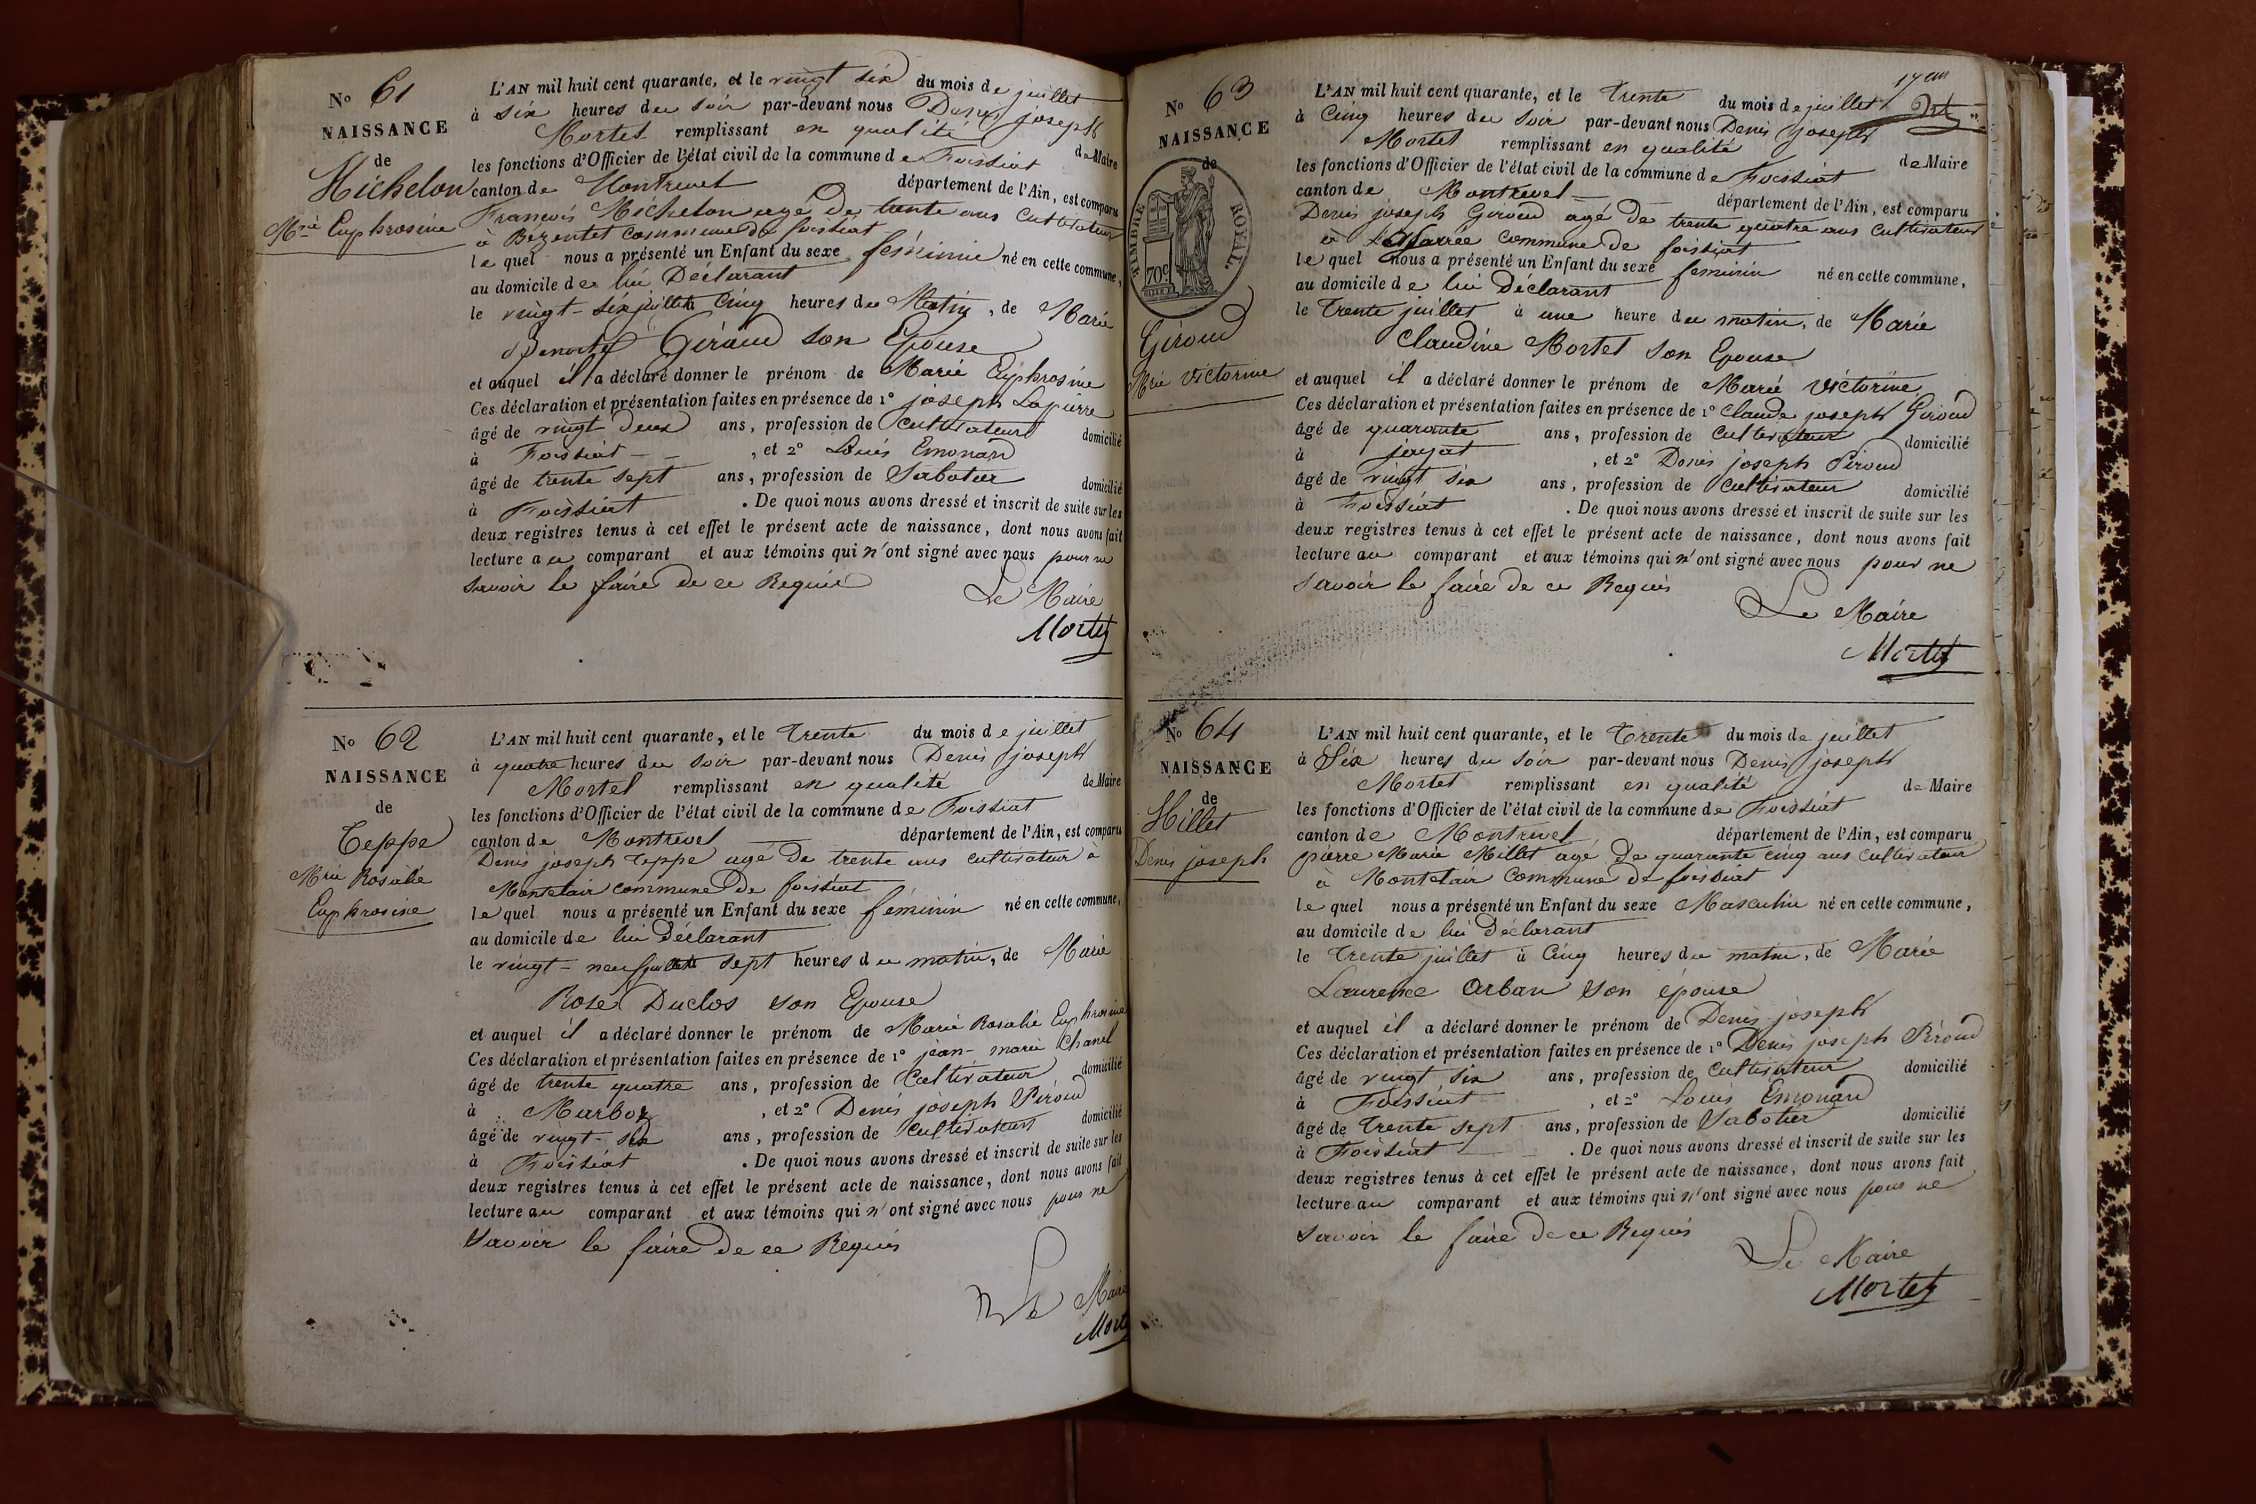 No 61
NAISSANCE
de
Michelon
Mrie Euphrosine
L'AN mil huit cent quarante, et le vingt six du mois de juillet
à six heures du soir par-devant nous Denis joseph
Mortel remplissant en qualité de Maire
les fonctions d'Officier de l'état civil de la commune de Foissiat
canton de Montrevel département de l'Ain, est comparu
Francois Michelon agé de trente ans Cultivateur
à Bezentet commune de foissiat
le quel nous a présenté un Enfant du sexe féminin né en cette commune,
au domicile de lui Déclarant
le vingt-six juillet à Cinq heures du Matin, de Marie
Giraud son Epouse
et auquel il a déclaré donner le prénom de Marie Euphrosine
Ces déclaration et présentation faites en présence de 1º joseph Lapierre
âgé de vingt deux ans, profession de Cultivateur domicilié
à Foissiat , et 2º Louis Emonard
âgé de trente sept ans, profession de Sabotier domicilié
à Foissiat . De quoi nous avons dressé et inscrit de suite sur les
deux registres tenus à cet effet le présent acte de naissance, dont nous avons fait
lecture au comparant et aux témoins qui n'ont signé avec nous pour ne
savoir le faire de ce Requis
Le Maire
Mortel
No 62
NAISSANCE
de
Teppe
Mrie Rosalie
Euphrosine
L'AN mil huit cent quarante, et le trente du mois de juillet
à quatre heures du soir par-devant nous Denis joseph
Mortel remplissant en qualité de Maire
les fonctions d'Officier de l'état civil de la commune de Foissiat
canton de Montrevel département de l'Ain, est comparu
Denis joseph Teppe agé De trente ans cultivateur à
Montclair commune De foissiat
le quel nous a présenté un Enfant du sexe féminin né en cette commune,
au domicile de lui Déclarant
le vingt-neuf juillet à sept heures du matin, de Marie
Rose Duclos son Epouse
et auquel il a déclaré donner le prénom de Marie Rosalie Euphrosine
Ces déclaration et présentation faites en présence de 1º jean-marie Chanel
âgé de trente quatre ans, profession de Cultivateur domicilié
à Marboz , et 2º Denis joseph Piroud
âgé de vingt-six ans, profession de Cultivateur domicilié
à Foissiat . De quoi nous avons dressé et inscrit de suite sur les
deux registres tenus à cet effet le présent acte de naissance, dont nous avons fait
lecture au comparant et aux témoins qui n'ont signé avec nous pour ne
Savoir le faire de ce Requis
Le Maire
Mortel
17em
No 63
NAISSANCE
de
TIMBRE ROYAL.
70c
Giroud
Mrie Victorine
L'AN mil huit cent quarante, et le trente du mois de juillet
à Cinq heures du soir par-devant nous Denis joseph
Mortel remplissant en qualité de Maire
les fonctions d'Officier de l'état civil de la commune de Foissiat
canton de Montrevel département de l'Ain, est comparu
Denis joseph Giroud agé De trente quatre ans Cultivateur
à commune de foissiat
le quel nous a présenté un Enfant du sexe féminin né en cette commune,
au domicile de lui Déclarant
le trente juillet à une heure du matin, de Marie
Claudine Mortel son Epouse
et auquel il a déclaré donner le prénom de Marie Victorine
Ces déclaration et présentation faites en présence de 1º Claude joseph Giroud
âgé de quarante ans, profession de Cultivateur domicilié
à jayat , et 2º Denis joseph Piroud
âgé de vingt six ans, profession de Cultivateur domicilié
à Foissiat . De quoi nous avons dressé et inscrit de suite sur les
deux registres tenus à cet effet le présent acte de naissance, dont nous avons fait
lecture au comparant et aux témoins qui n'ont signé avec nous pour ne
savoir le faire de ce Requis
Le Maire
Mortel
No 64
NAISSANCE
de
Millet
Denis joseph
L'AN mil huit cent quarante, et le Trente du mois de juillet
à Six heures du soir par-devant nous Denis joseph
Mortel remplissant en qualité de Maire
les fonctions d'Officier de l'état civil de la commune de Foissiat
canton de Montrevel département de l'Ain, est comparu
pierre Marie Millet agé De quarante cinq ans Cultivateur
à Montclair Commune de foissiat
le quel nous a présenté un Enfant du sexe Masculin né en cette commune,
au domicile de lui Déclarant
le Trente juillet à Cinq heures du matin, de Marie
Laurence Orban son épouse
et auquel il a déclaré donner le prénom de Denis joseph
Ces déclaration et présentation faites en présence de 1º Denis joseph Piroud
âgé de vingt six ans, profession de Cultivateur domicilié
à Foissiat , et 2º Louis Emonard
âgé de Trente sept ans, profession de Sabotier domicilié
à Foissiat . De quoi nous avons dressé et inscrit de suite sur les
deux registres tenus à cet effet le présent acte de naissance, dont nous avons fait
lecture au comparant et aux témoins qui n'ont signé avec nous pour ne
savoir le faire de ce Requis
Le Maire
Mortel